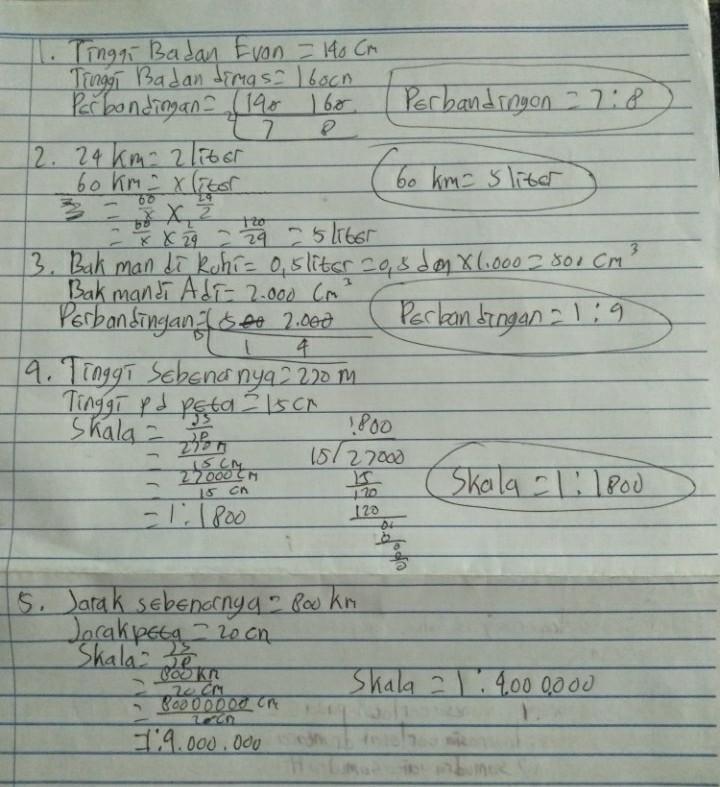 1. Tinggi Badan Evan = 140 Cm
Tinggi Badan dimas = 160cm
Perbandingan = 140 160
7 8
Perbandingan = 7:8
2. 24 km = 2 liter
60 km = x liter
= 60/x × 24/2
= 60/x × 2/24 = 120/24 = 5 liter
60 km = 5 liter
3. Bak mandi Ruhi = 0,5 liter = 0,5 dm × 1.000 = 500 Cm³
Bak mandi Adi = 2.000 Cm³
Perbandingan = 500 2.000
1 4
Perbandingan = 1:4
4. Tinggi Sebenarnya = 270 m
Tinggi pd peta = 15 cm
Skala = JS/JP
= 270 m/15 cm
= 27000 cm/15 cm
= 1:1800
1800
15/27000
15
120
120
Skala = 1:1800
5. Jarak sebenarnya = 800 km
Jarak peta = 20 cm
Skala = JS/JP
= 800 km/20 cm
= 80000000 cm/20 cm
= 1:4.000.000
Skala = 1:4.000.000